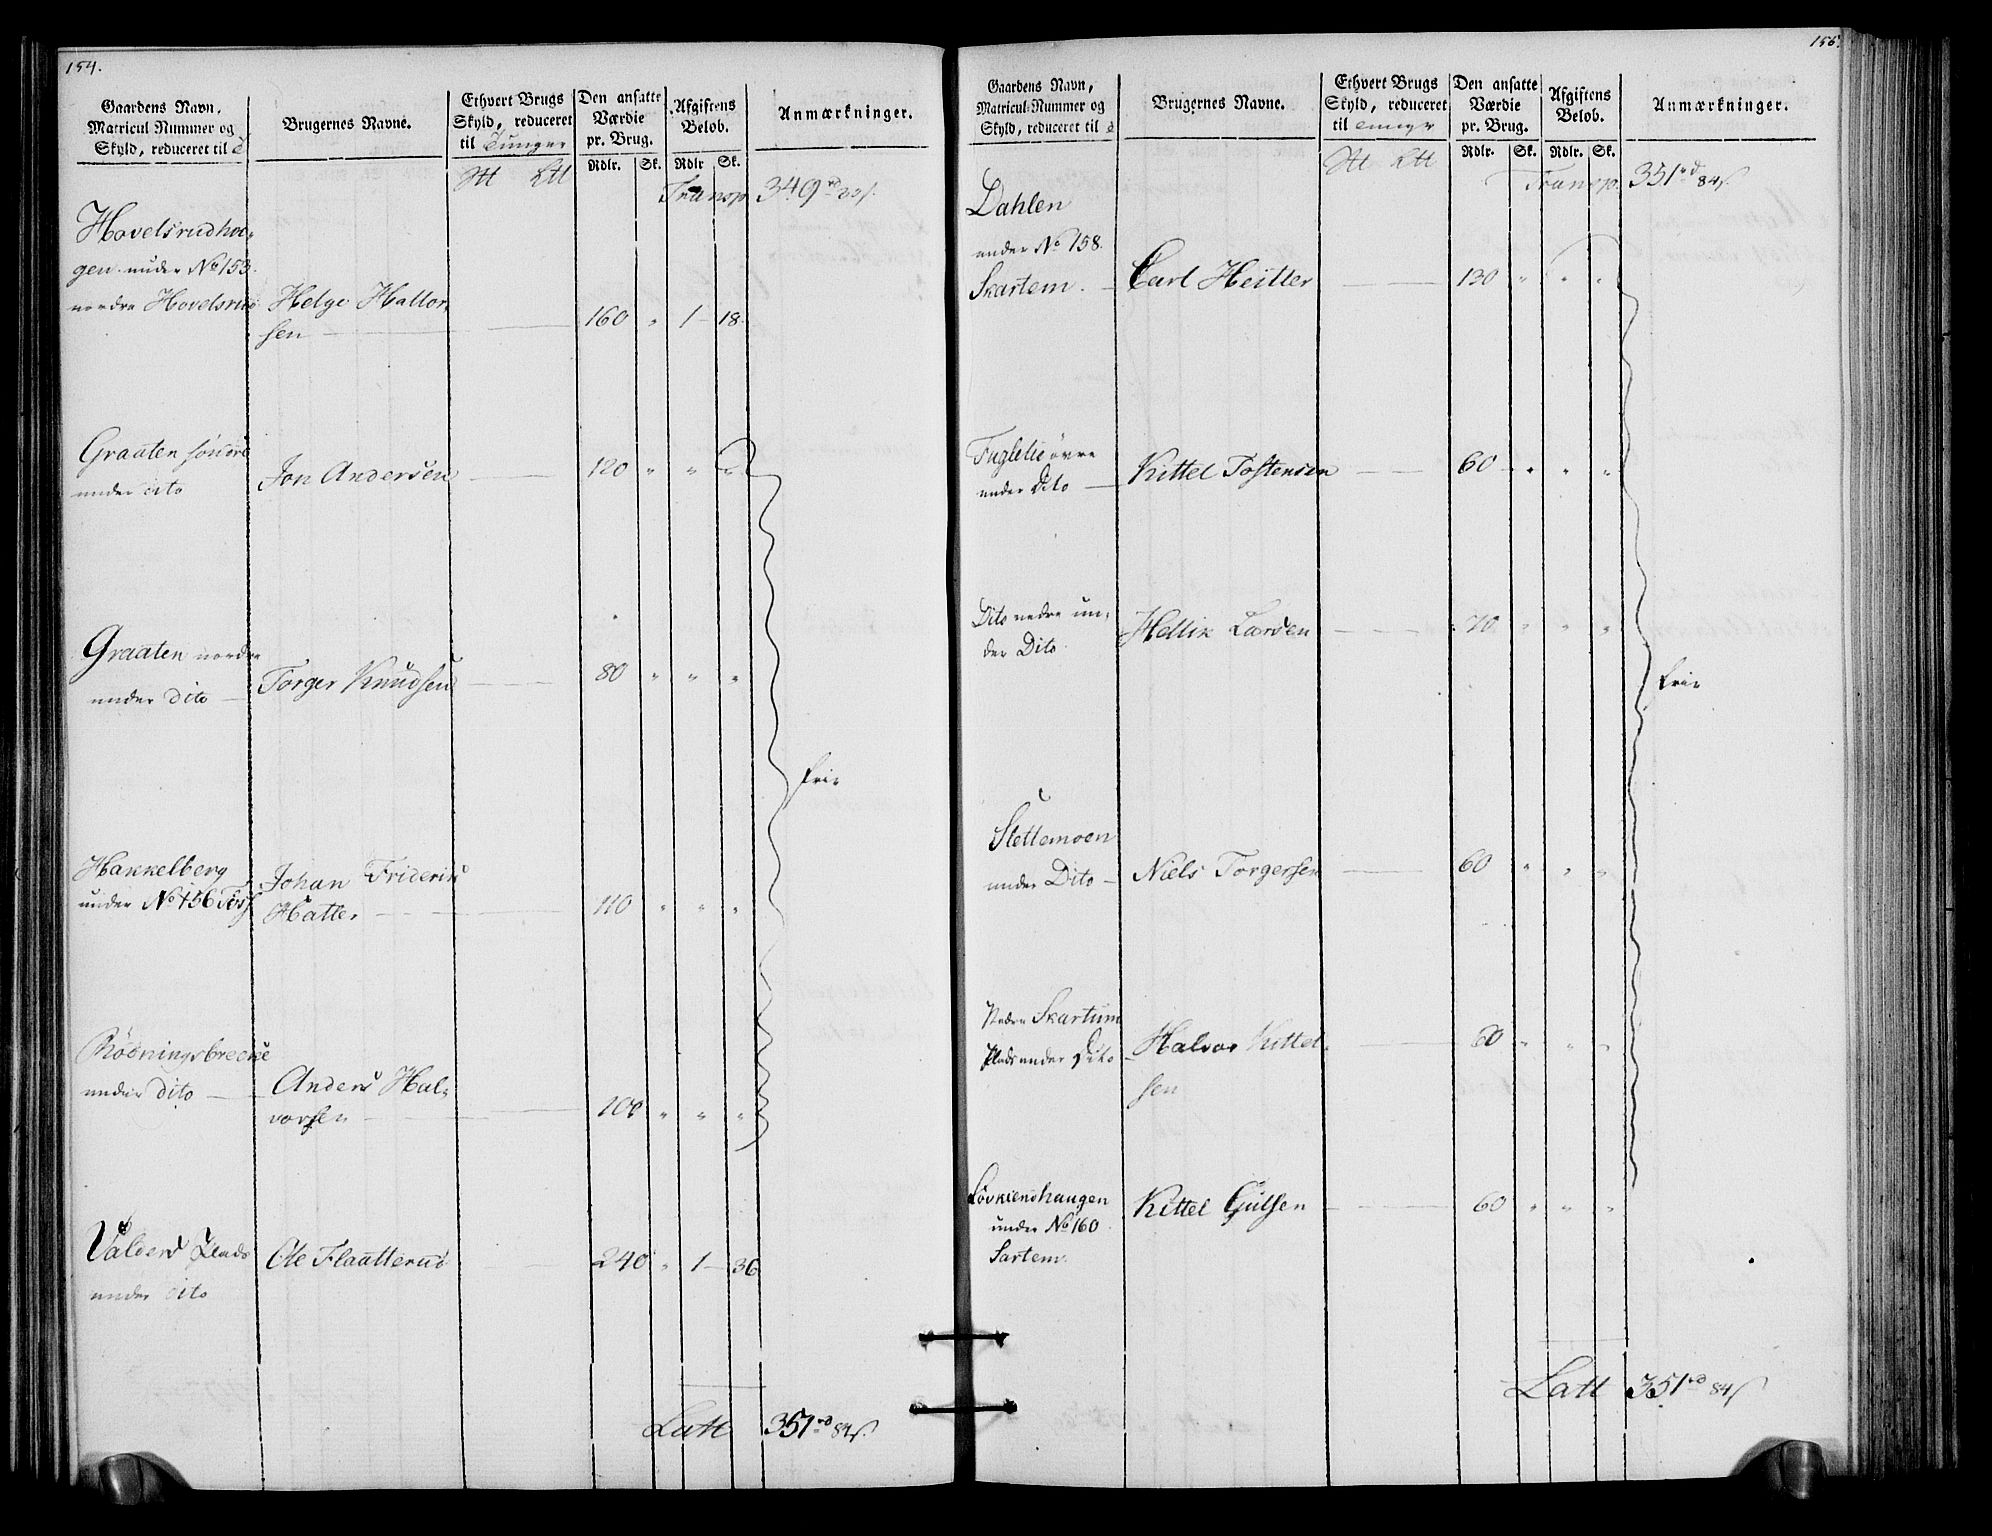 154.
Gaardens Navn, Matricul Nummer og Skyld, reduceret til
Brugernes Navne.
Ethvert Brugs Skyld, reduceret til Tunger
Den ansatte Værdie pr. Brug.
Afgiftens Beløb.
Anmærkninger.
Rdlr. Sk. Rdlr Sk.
Transp. 349
Hovelsrudhou-
gen under No 153.
nordre Hovelsrud Helge Hallor-
sen 160 " 1 - 18.
Graaten söndre
under dito Jon Andersen 120 " " "
Graaten nordre
under dito Torger Knudsen 80 " " "
frie
Hakkelberg Johan Friderik
under No 156 Hatter 110 " " "
Rödningsbrecke
under dito Anders Hal-
vorsen 100 " " "
Valders Plads Ole Flaatterud 240 " 1 - 36
under dito
Latt 351 rd 84 s.
155.
Gaardens Navn, Matricul-Nummer og Skyld, reduceret til
Brugernes Navne.
Ethvert Brugs Skyld, reduceret til Tunger
Den ansatte Værdie pr. Brug.
Afgiftens Belob.
Anmærkninger.
Rdlr. Sk. Rdlr. Sk.
Transp. 351 rd 84 s.
Dahlen
under No 158.
Skartem. Carl Heitler 130 " " "
Fuglelie övre
under Dito Kittel Tostensen 60 " " "
Dito nedre un-
der Dito Hellik Larsen 70 " " "
frie
Slettemoen
under Dito Niels Torgersen 60 " " "
Nedre Skartum
Plads under Dito Halvor Kittel-
sen 60 " " "
Lövkiendhaugen Kittel Gulsen 60 " " "
under No 160
Sartem.
Latt 351 rd 84 s